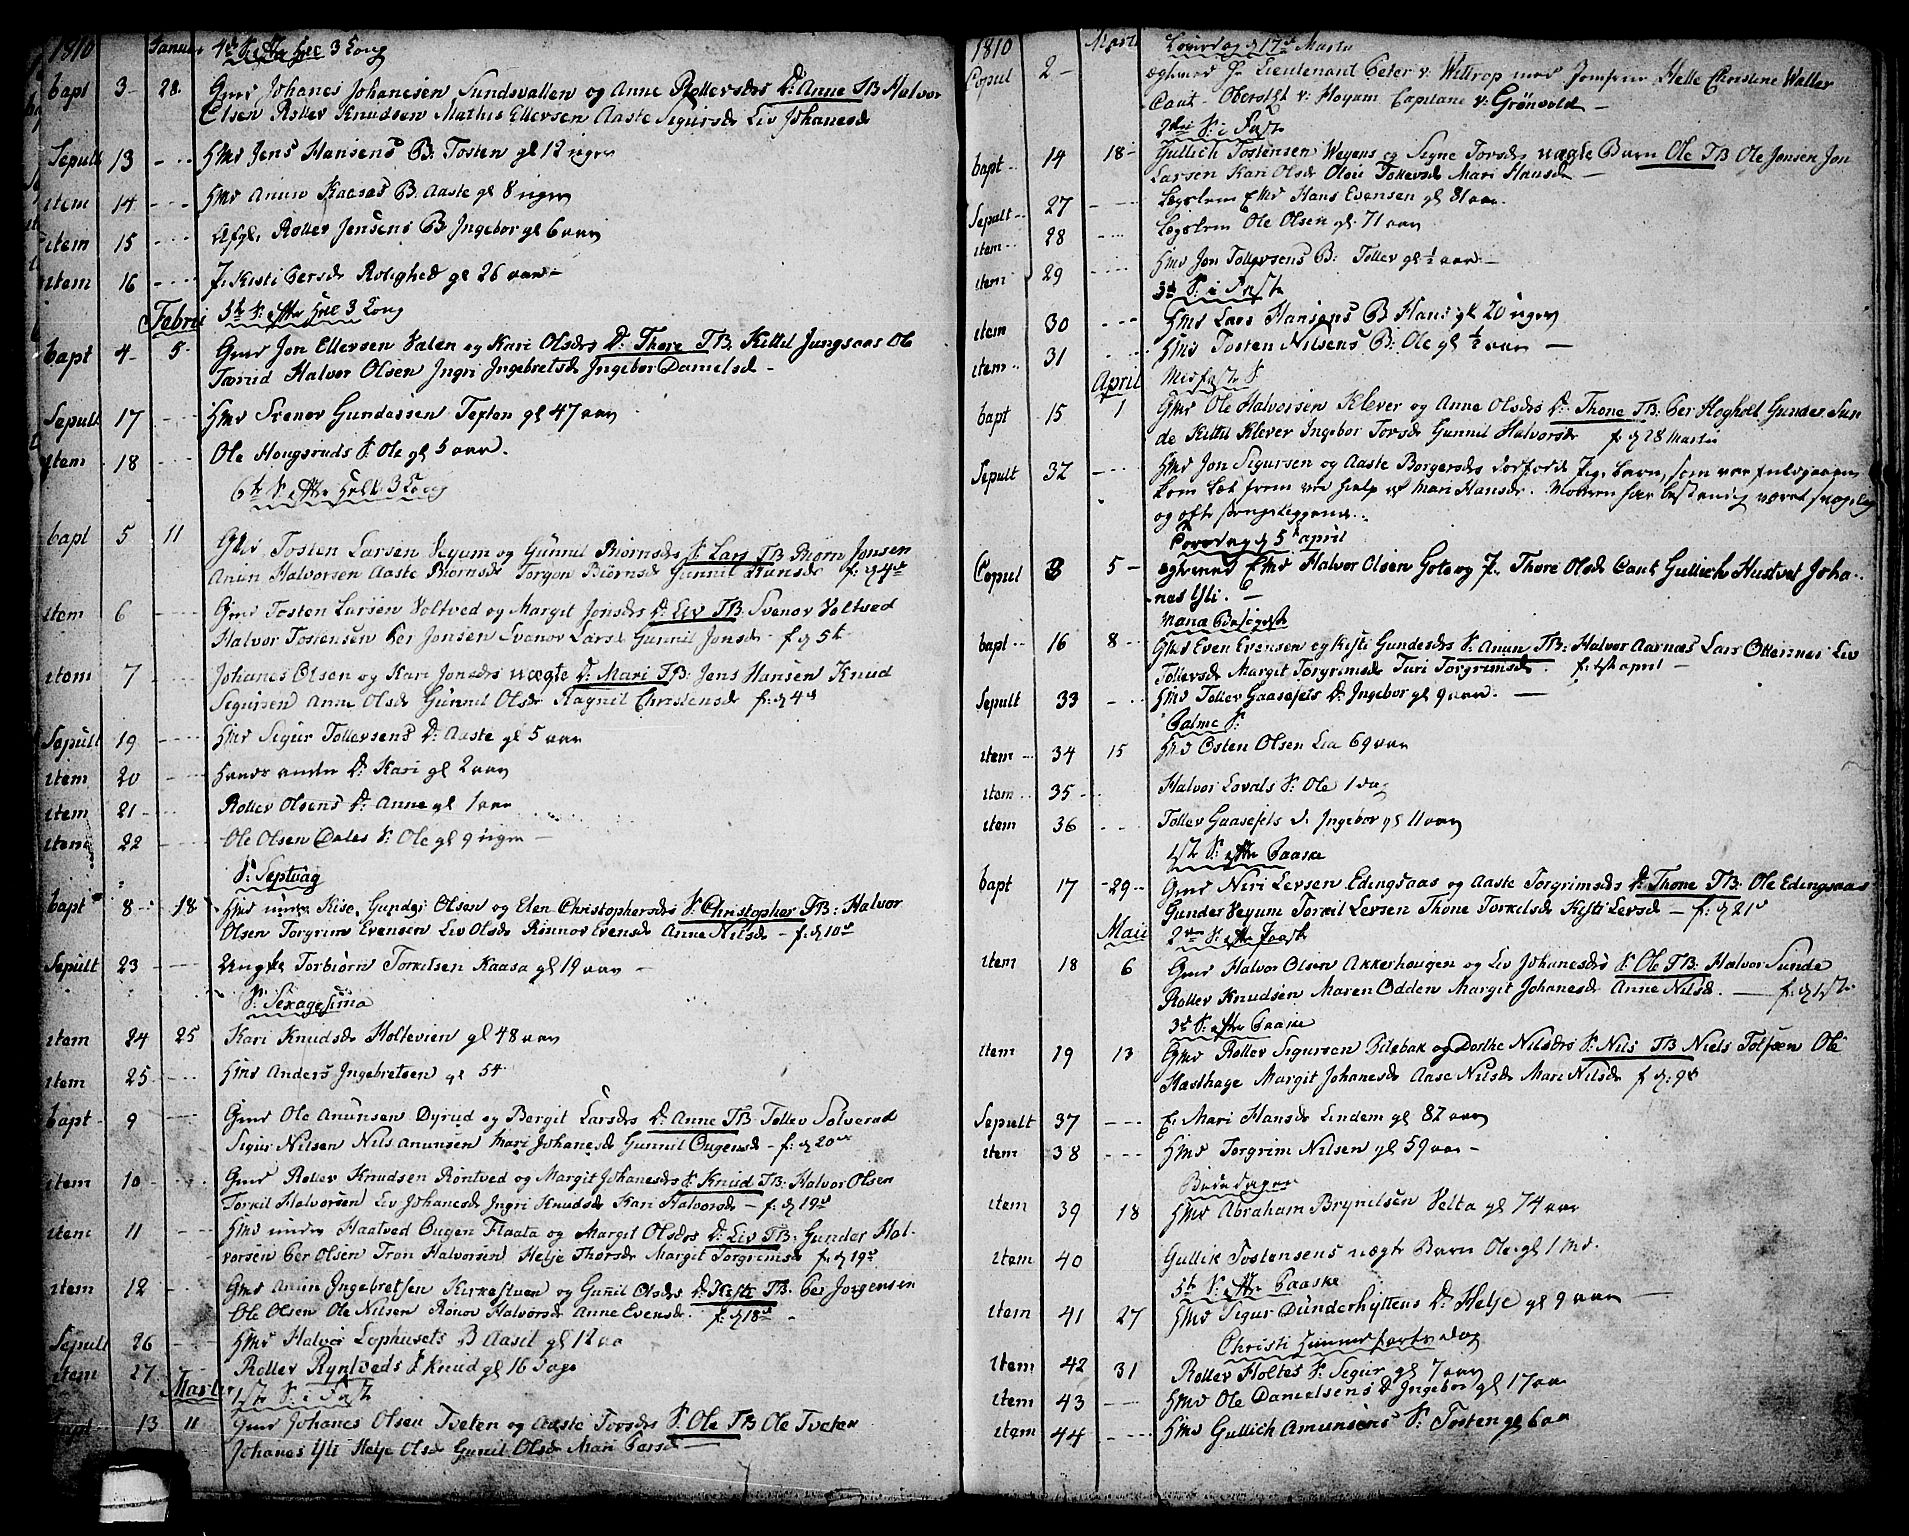 1810 Januar 4de S. efter Hel 3 Kong
bapt 3 28 Gmd Johanes Johanesen Sundsvallen og Anne Rollefsdr D: Anne TB Halvor
Olsen Roller Knudsen Mathis Ellefsen Aaste Sigursdr Liv Johanesdr
Sepult 13 Hmd Jens Hansens B: Tosten gl 12 uger
item 14 Hmd Anun Kaasas B. Aaste gl 8 uger
item 15 Roller Jensens B Ingebor gl 6 aar
item 16 P. Kisti Persdr Rolighed gl 26 aar
Februi 5te S. efter Hel 3 Kong
bapt 4 5 Gmd Jon Ellevsen Valen og Kari Olsdr D: Thore TB. Kittil Jungsaas Ole
Halvor Olsen Ingri Ingebretsdr Ingebor Danielsdr
Sepult 17 Hmd Svenor Gundersen Texten gl 47 aar
item 18 Ole Hougsruds S. Ole gl 5 aar.
6te S. efter Hell 3 Kong
bapt 5 11 Hmd Tosten Larsen Vegum og Gunnil Biornsdr S. Lars TB Biorn Jonsen
Anun Halvorsen Aaste Biornsdr Torgon Biornsdr Gunnil Hansdr f: d 4de
item 6 Gmd Tosten Larsen Voltved og Margit Jonsdr D: Liv TB. Svenor Voltved
Halvor Tostensen Per Jonsen Svenor Larsdr Gunnil Jonsdr f. d 5te
item 7 Johanes Olsen og Kari Jonsdr uægte D: Mari TB: Jens Hansen Knud
Sigursen Anne Olsdr Gunnil Olsdr Ragnil Christensdr f: d 4de
Sepult 19 Hmd Sigur Tollevsens D: Aaste gl 5 aar
item 20 Hands anden D: Kari gl 2 aar
item 21 Roller Olsens D: Anne gl 1 aar
item 22 Ole Olsen Dales S: Ole gl 9 uger
S: Septuag
bapt 8 18 Hmd under Kise, Gunder Olsen og Elen Christophersdr S. Christopher TB: Halvor
Olsen Torgrim Evensen Liv Olsdr Ronnov Evensdr Anne Nilsdr f: d 10de
Sepult 23 Ungkl Torbiorn Torkilsen Kaasa gl 19 aar
S: Sexagesima
item 24 25 Kari Knudsdr Holtevien gl 48 aar
item 25 Hmd Anders Ingebretsen gl 54
bapt 9 Gmd Ole Anunsen Dyrud og Bergit Larsdr D: Anne TB Tollev Solverud
Sigur Nilsen Nils Anunsen Mari Johanesdr Gunnil Ougensdr f: d 20de
item 10 Gmd Roller Knudsen Rontved og Margit Johanesdr S. Knud TB: Halvor Olsen
Torkil Halvorsen Liv Johanesdr Ingri Knudsdr Kari Halvorsdr f: d 19de
item 11 Hmd under Haatved Ougen Flaata og Margit Olsdr D: Liv TB: Gunder Hal-
vorsen Per Olsen Tron Halvorsen Helje Thorsdr Margit Torgrimsdr f: d 19de
item 12 Gmd Anun Ingebretsen Kirkestuen og Gunil Olsdr D: Kisti TB. Per Jorgensen
Ole Olsen Ole Nilsen Ronov Halvorsdr Anne Evensdr. f: d 18de
Sepult 26 Hmd Halvor Lophusets B Aasil gl 12 aa
item 27 Roller Ryntveds S Knud gl 16 Dage
Martii 1ste S. i Faste
bapt 13 11 Gmd Johanes Olsen Tveten og Aaste Torsdr S. Ole TB Ole Tveten
Johanes Yli Helje Olsdr Gunnil Olsdr Mari Parsdr
1810 Marti Løverdag d 17de Martii
Copul 2 ægteviet Hr Lieutenant Peter v: Wittrop med Jomfru Helle Christine Waller
Caut. Oberstlt v: Hoyam Capitaine v: Grönvold
2den S. i Faste
bapt 14 18 Gullich Tostensen Wegens og Signe Torsdr uægte Barn Ole TB Ole Jonsen Jon
Larsen Kari Olsdr Olou Tollevsdr Mari Hansdr
Sepult 27 Lægslem Hans Evensen gl 81 aar.
item 28 Lægslem Ole Olsen gl 71 aar
item 29 Hmd Jon Tollevsens B: Tollev gl ½ aar
3de S. i Faste
item 30 Hmd Lars Hansens B Hans gl 20 uger
item 31 Hmd Tosten Nilsens B: Ole gl ½ aar
April Midfaste S
bapt 15 1 Gmd Ole Halvorsen Klever og Anne Olsdr D: Thone TB: Per Hogholt Gunder Sun-
de Kittil Klever Ingebor Torsdr Gunnil Halvorsdr f. d 28 Martii
Sepult 32 Hmd Jon Sigursen og Aaste Borgersdr dødfødde Pige Barn, som var
kom frem ved hielp af Mari Hansdr. Moderen har bestandig været svagelig
og ofte sengeliggende.
Torsdag d 5te april
Copul 3 5 ægteviet Halvor Olsen Gote og P. Thore Olsdr Caut Gullich Hustvet Joha-
nes Yli.
Mariæ Besøgelse
bapt 16 8 Gmd Even Evensen og Kisti Gundersdr S. Anun TB: Halvor Aarnas Lars Liv
Tollevsdr Margit Torgrimsdr Turi Torgrimsdr f. april
Sepult 33 Hmd Tollev Gaasefets D: Ingebor gl 9 aar.
Palme S:
item 34 15 Hmd Osten Olsen Lia 69 aar
item 35 Halvor Lovals S: Ole 1 dag
item 36 Tollev Gaasefets D. Ingebor gl 11 aar
1ste S: efter Paaske
bapt 17 29 Gmd Niri Levsen Edingsaas og Aaste Torgrimsdr D: Thone TB: Ole Edingsaas
Gunder Vegum Torkil Levsen Thone Torkilsdr Kisti Levsdr f: d 21de
Maii 2den S: efter Paaske
item 18 6 Gmd Halvor Olsen Akkerhougen og Liv Johanesdr S. Ole TB: Halvor Sunde
Roller Knudsen Maren Odden Margit Johanesdr Anne Nilsdr. f: d 1ste
3de S: efter Paaske
item 19 13 Gmd Roller Sigursen Pilebak og Dorthe Nilsdr S. Nils TB Niels Tolfsen Ole
Hasthage Margit Johanesdr Aase Nilsdr Mari Nilsdr f d: 9de
Sepult 37 E: Mari Hansdr Lindem gl 82 aar
item 38 Hmd Torgrim Nilsen gl 59 aar
Bededagen
item 39 18 Hmd Abraham Brynilsen Velta gl 74 aar
item 40 Gullik Tostensens uægte Barn Ole gl 1 Md.
5te S. efter Paaske
item 41 27 Hmd Sigur Dunderhyttens D: Helje gl 9 aar
Christi Himmelfarts Dag
item 42 31 Roller Holtes S. Sigur gl 7 aar
item 43 Hmd Ole Danielsens D Ingebor gl 17 aar
item 44 Hmd Gullich Amunsens S: Tosten gl 6 aa